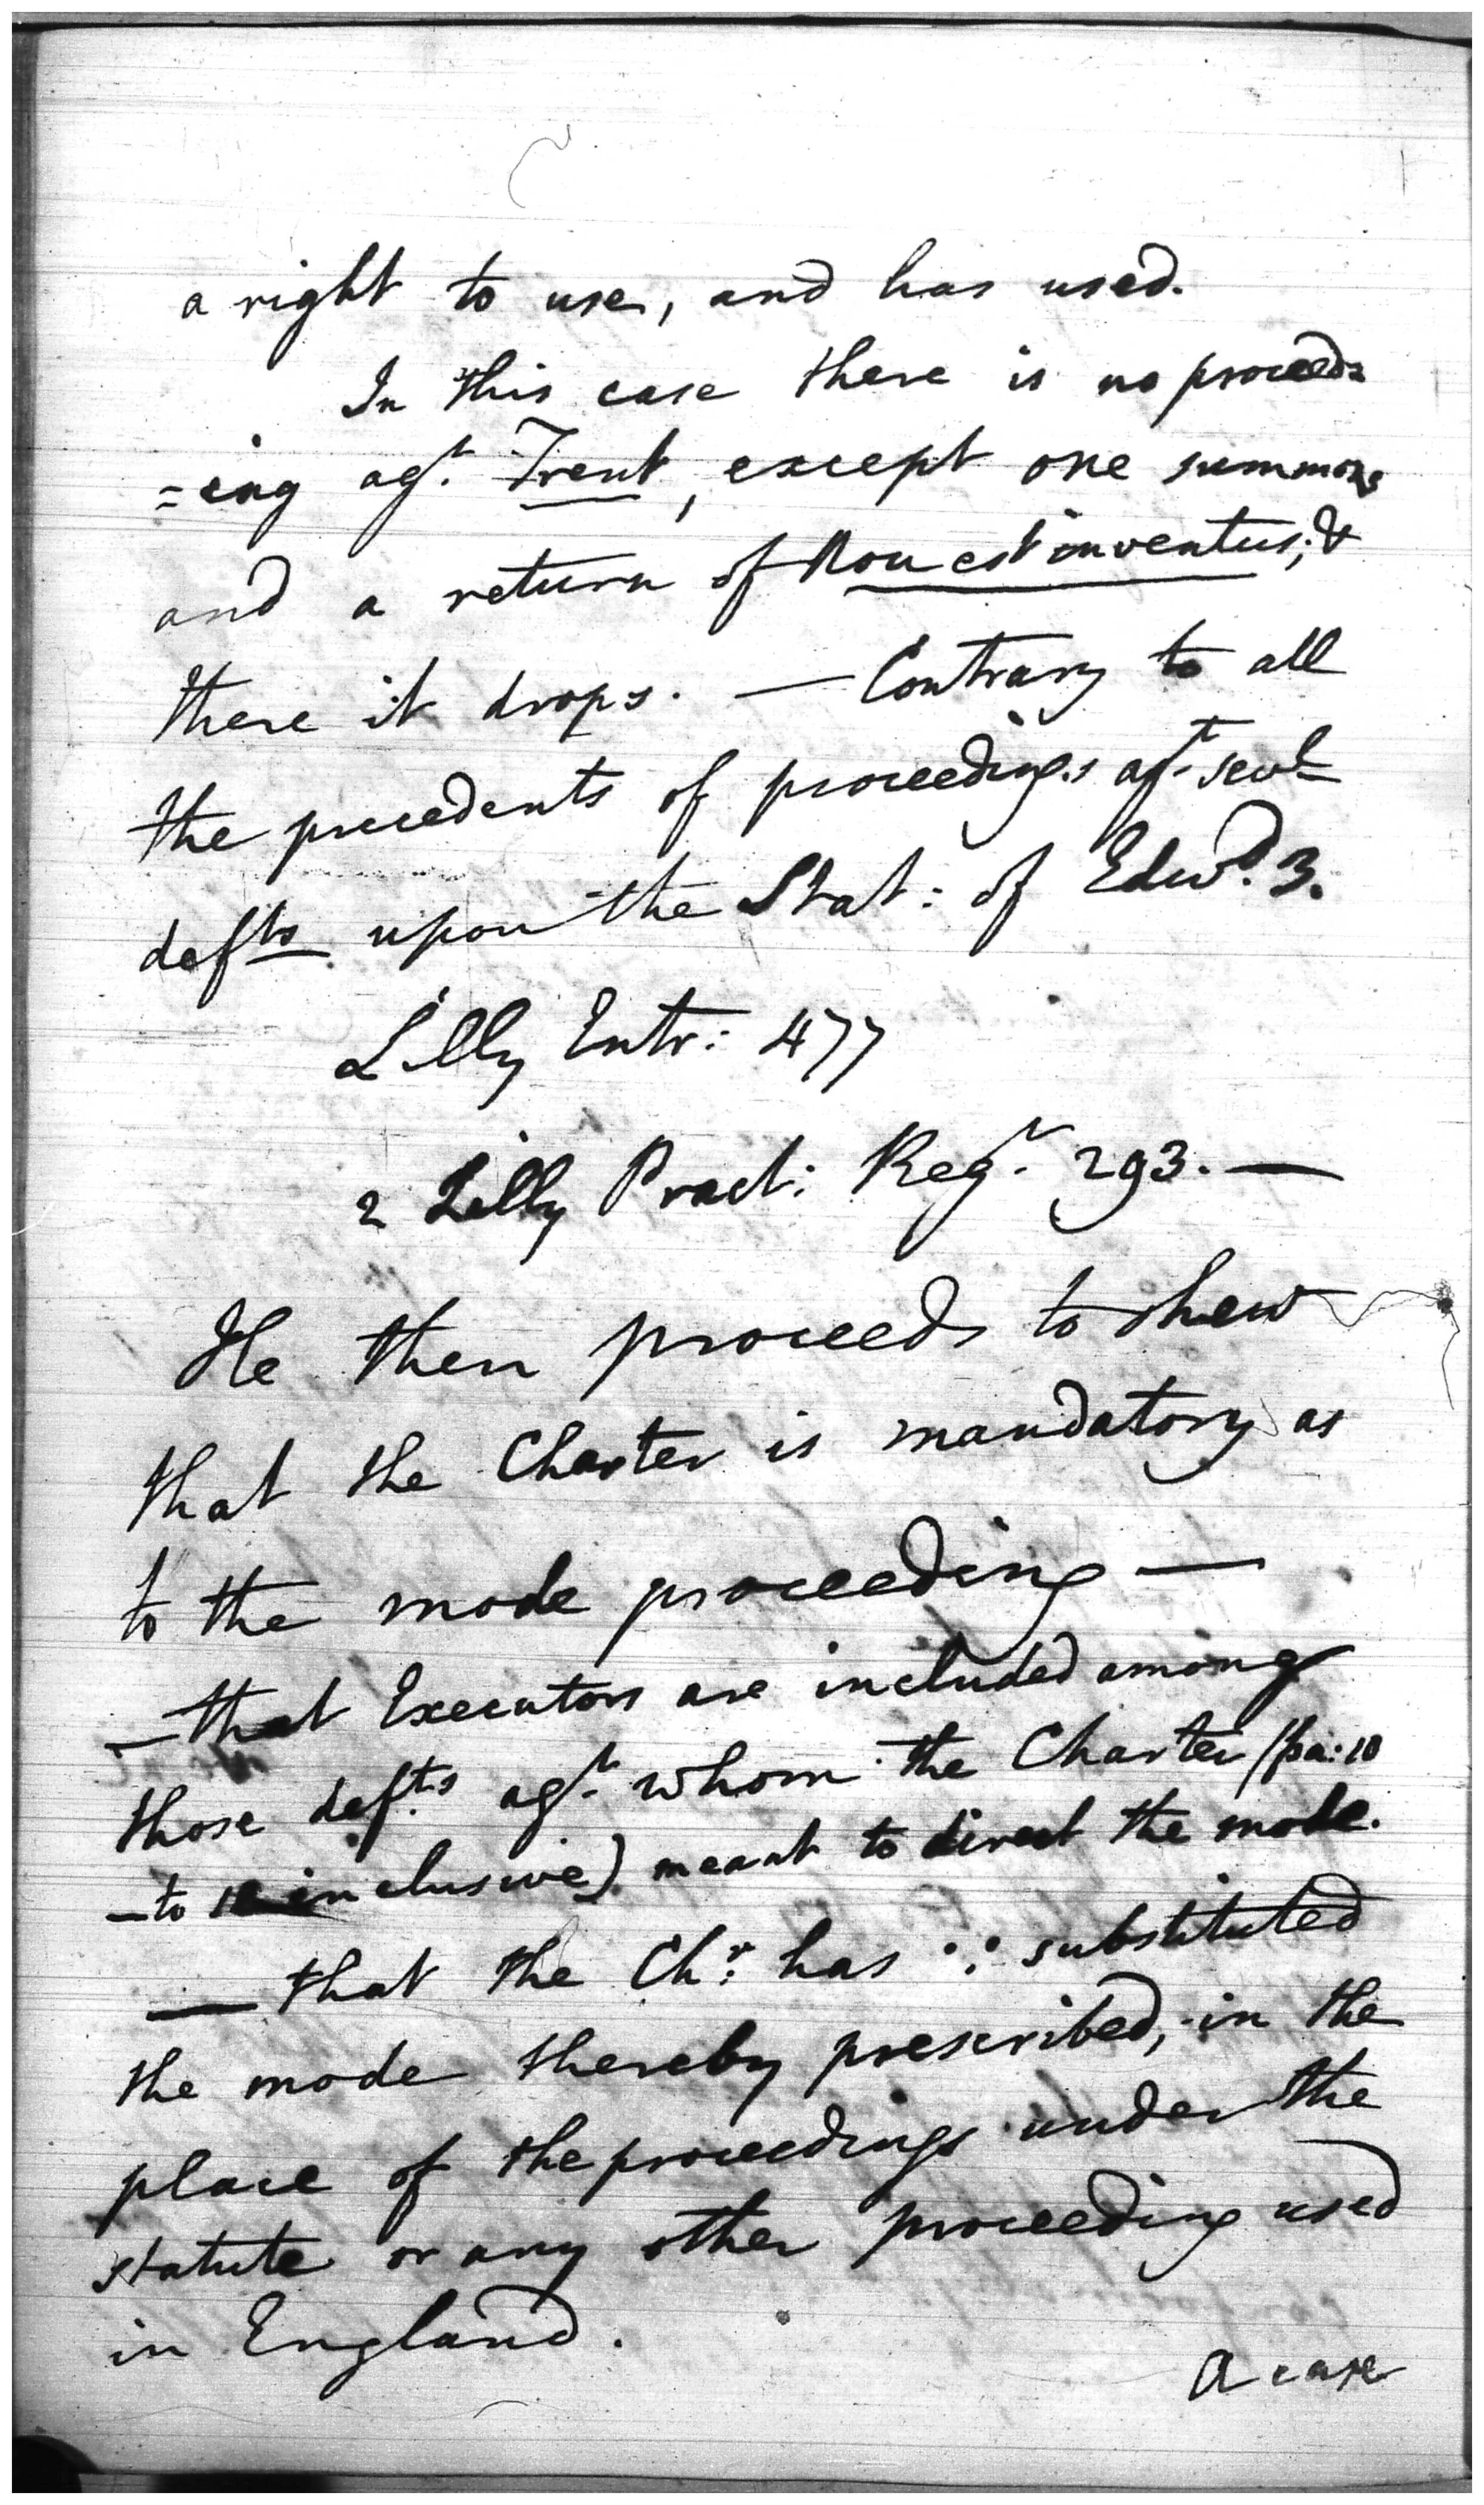 a right to use, and has used.
In this case there is no proceed=
=ing agt. Trent, except one summons
and a return of Non est inventus; &
there it drops. — Contrary to all
the precedents of proceedings agt. sevl
defts upon the Stat: of Edwd. 3.
Lilly Entr: 477
2 Lilly Pract: Regr. 293. —
He then proceeds to shew
that the Charter is mandatory as
to the mode proceeding —
— that Executors are included among
those defts. agt. whom the Charter (pa: 10
— to inclusive) meant to direct the mode.
— that the Chr: has ∵ substituted
the mode thereby prescribed, in the
place of the proceedings under the
statute or any other proceeding used
in England.
A case